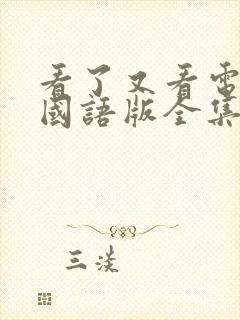 看了又看電
國語版全集
三淡